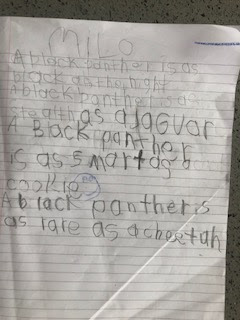 MILO
A black panther is as
black as the night
A black panther is as
stealth as a JaGuar
A Black panther
is as smart as a
cookie
A black panther is
as rare as a cheetah